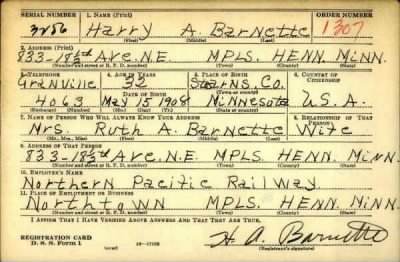 SERIAL NUMBER 1. NAME (Print) ORDER NUMBER
Harry A Barnette 1307
(First) (Middle) (Last)
2. ADDRESS (Print)
833-18½th Ave. N.E. MPLS. HENN. MINN.
(Number and street or R. F. D. number) (Town) (County) (State)
3. TELEPHONE 4. AGE IN YEARS 5. PLACE OF BIRTH 6. COUNTRY OF CITIZENSHIP
Granville 32 Stearns. Co.
DATE OF BIRTH (Town or county)
4063 May 15 1908 Minnesota U.S.A.
(Mo.) (Day) (Yr.) (State or country)
7. NAME OF PERSON WHO WILL ALWAYS KNOW YOUR ADDRESS 8. RELATIONSHIP OF THAT PERSON
Mrs. Ruth A. Barnette Wife
(Mr., Mrs., Miss) (First) (Middle) (Last)
9. ADDRESS OF THAT PERSON
833-18½th Ave. N.E. MPLS. HENN. MINN.
(Number and street or R. F. D. number) (Town) (County) (State)
10. EMPLOYER'S NAME
Northern Pacific Railway
11. PLACE OF EMPLOYMENT OR BUSINESS
Northtown MPLS. HENN. MINN.
(Number and street or R. F. D. number) (Town) (County) (State)
I AFFIRM THAT I HAVE VERIFIED ABOVE ANSWERS AND THAT THEY ARE TRUE.
REGISTRATION CARD
D. S. S. Form 1 (over) H. A. Barnette
(Registrant's signature)